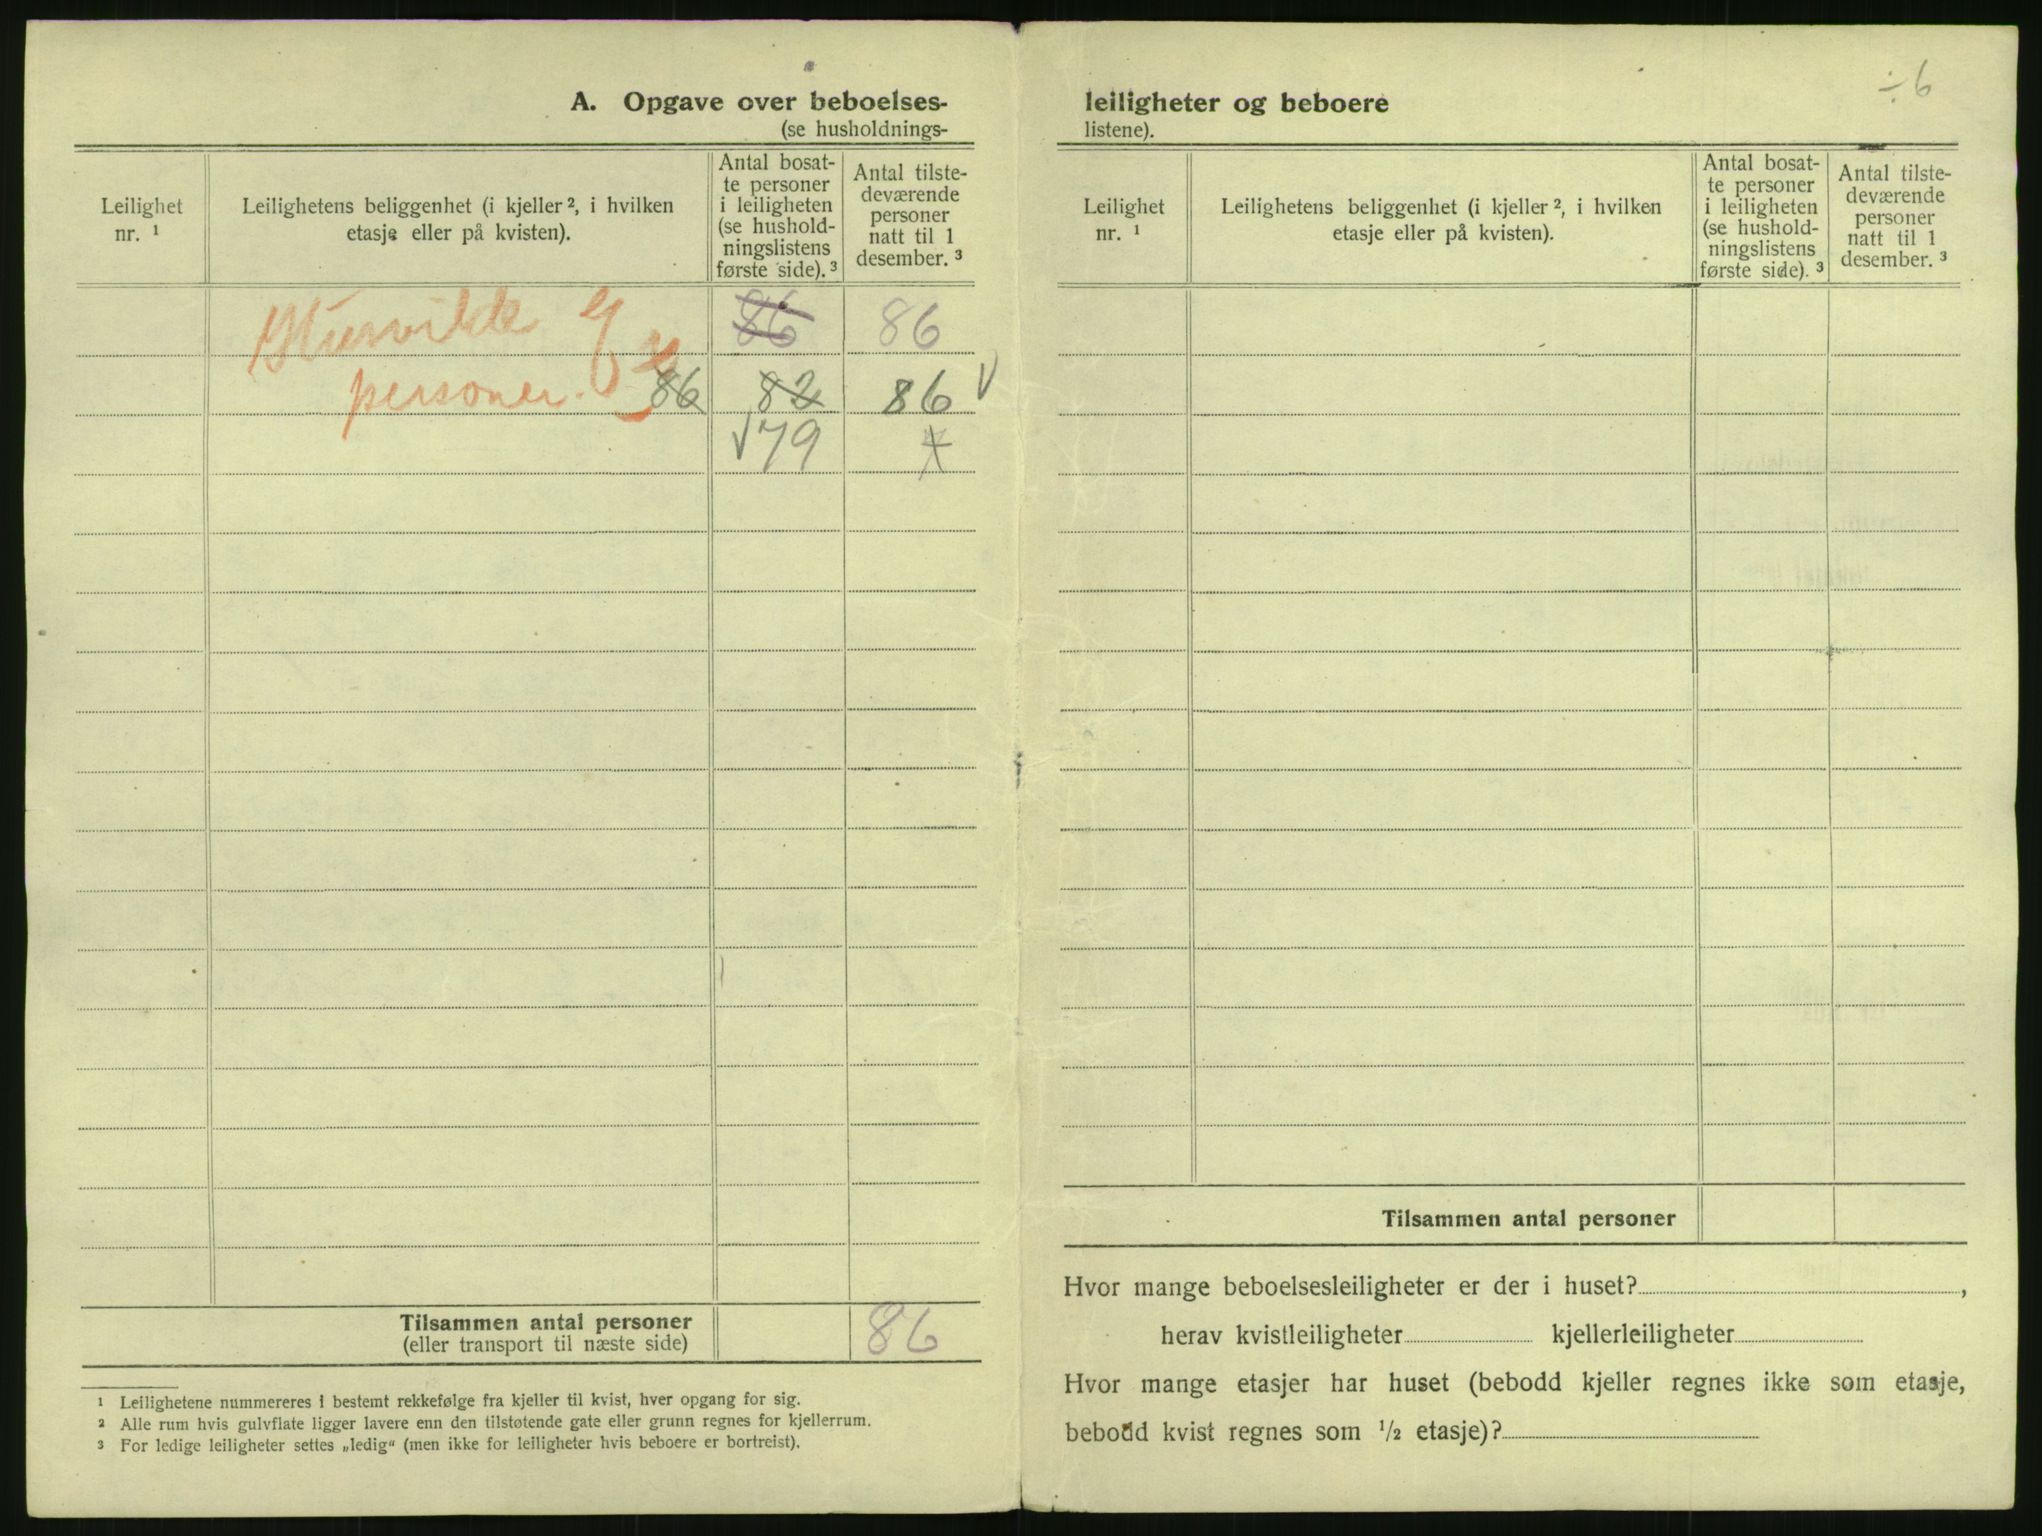 A. Opgave over beboelses-
(se husholdnings-
Leilighet nr. ¹
Leilighetens beliggenhet (i kjeller ², i hvilken etasje eller på kvisten).
Antal bosat-
te personer
i leiligheten
(se hushold-
ningslistens
første side). ³
Antal tilste-
deværende
personer
natt til 1
desember. ³
Husvilde
86 86
personer.
86 82 86 V
√79
Tilsammen antal personer 86
(eller transport til næste side)
¹ Leilighetene nummereres i bestemt rekkefølge fra kjeller til kvist, hver opgang for sig.
² Alle rum hvis gulvflate ligger lavere enn den tilstøtende gate eller grunn regnes for kjellerrum.
³ For ledige leiligheter settes „ledig“ (men ikke for leiligheter hvis beboere er bortreist).
÷6
leiligheter og beboere
listene).
Leilighet nr. ¹
Leilighetens beliggenhet (i kjeller ², i hvilken etasje eller på kvisten).
Antal bosat-
te personer
i leiligheten
(se hushold-
ningslistens
første side). ³
Antal tilste-
deværende
personer
natt til 1
desember. ³
Tilsammen antal personer
Hvor mange beboelsesleiligheter er der i huset? ,
herav kvistleiligheter kjellerleiligheter
Hvor mange etasjer har huset (bebodd kjeller regnes ikke som etasje,
bebodd kvist regnes som ½ etasje)?